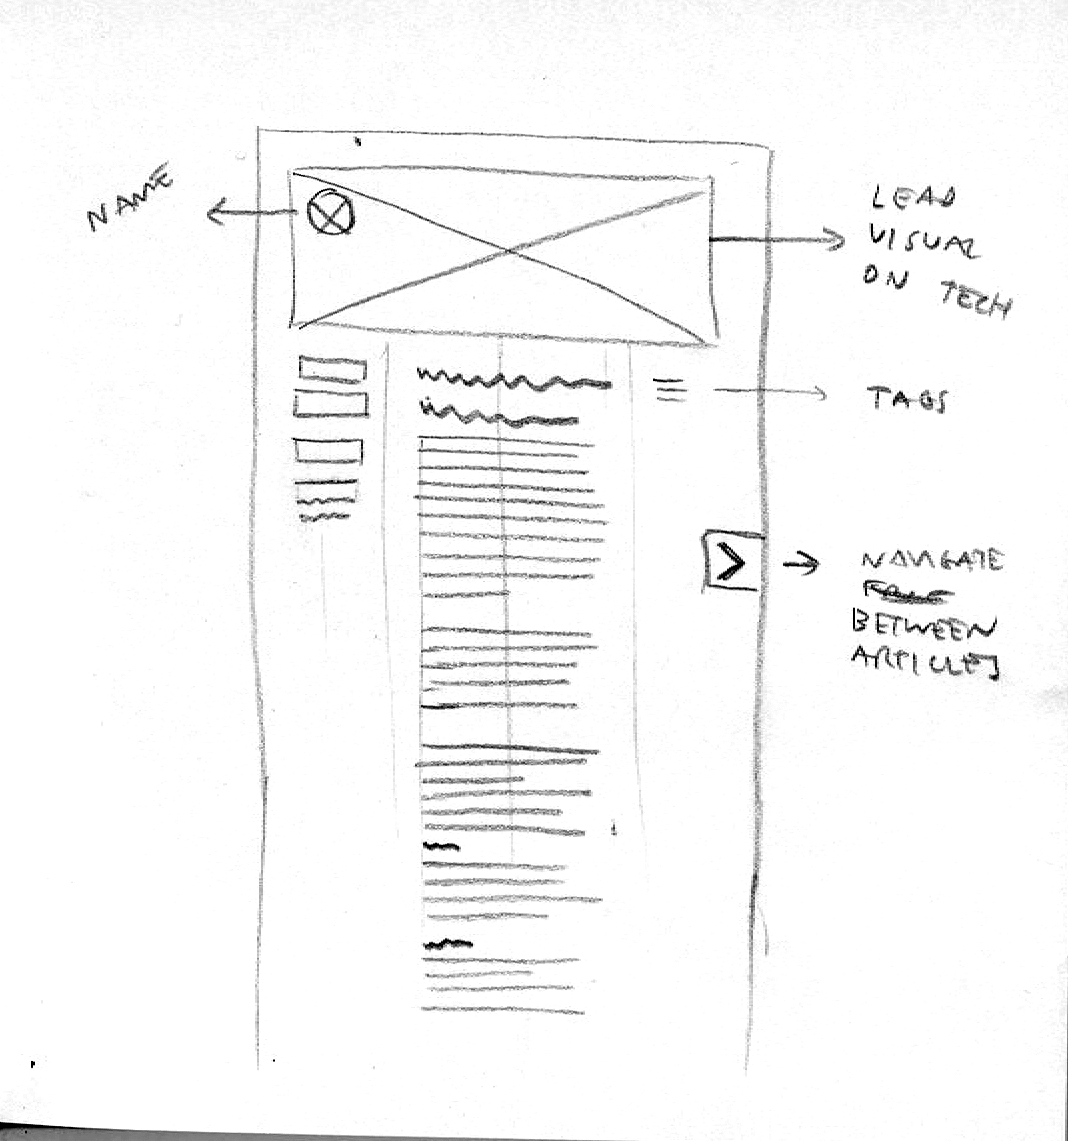 NAME
LEAD
VISUAL
ON TECH
TAGS
NAVIGATE
BETWEEN
ARTICLES